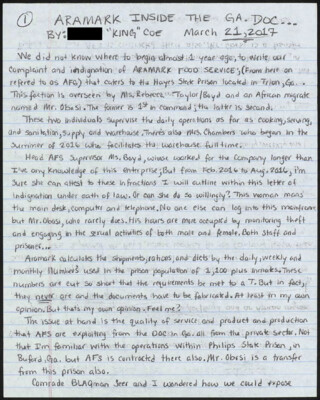 ①
ARAMARK INSIDE THE GA. DOC...
BY: "KING" COE March 21, 2017
We did not know where to begin almost 1 year ago, to write our
Complaint and indignation of ARAMARK FOOD SERVICES (From here on
referred to as AFS) that caters to the Hay's State Prison located in Trion, Ga..
This faction is overseen by Ms. Rebecca Taylor/Boyd and an African migrate
named Mr. Obesi. The former is 1st in command; the latter is second.
These two individuals supervise the daily operations as far as cooking, serving,
and sanitation, supply and warehouse. There's also Mrs Chambers who began in the
Summer of 2016 who facilitates the warehouse full time.
Head AFS Supervisor Ms. Boyd, whose worked for the Company longer than
I've any knowledge of this enterprise; But from Feb. 2016 to Aug. 2016, I'm
sure she can attest to these infractions I will outline within this letter of
indignation under oath of law. Or can she do so willingly? This woman mans
the main desk, computer and telephone. No one else can log into this mainframe
but Mr. Obesi, who rarely does. His hours are more occupied by monitoring theft
and engaging in the sexual activities of both male and female. Both staff and
prisoner...
Aramark calculates the supplements, rations, and diets by the daily, weekly and
monthly numbers used in the prison population of 1,100 plus inmates. These
numbers are cut so short that the requirements be met to a T. But in fact,
they never are and the documents have to be fabricated. At least in my own
opinion. But thats my own opinion. Feel me?
The issue at hand is the quality of service and product and production
that AFS are exploiting from the DOC in Ga. all from the private sector. Not
that I'm familiar with the operations within Philips State Prison, in
Buford, Ga. but AFS is contracted there also. Mr. Obesi is a transfer
from this prison also.
Comrade BLAQman Seer and I wondered how we could expose